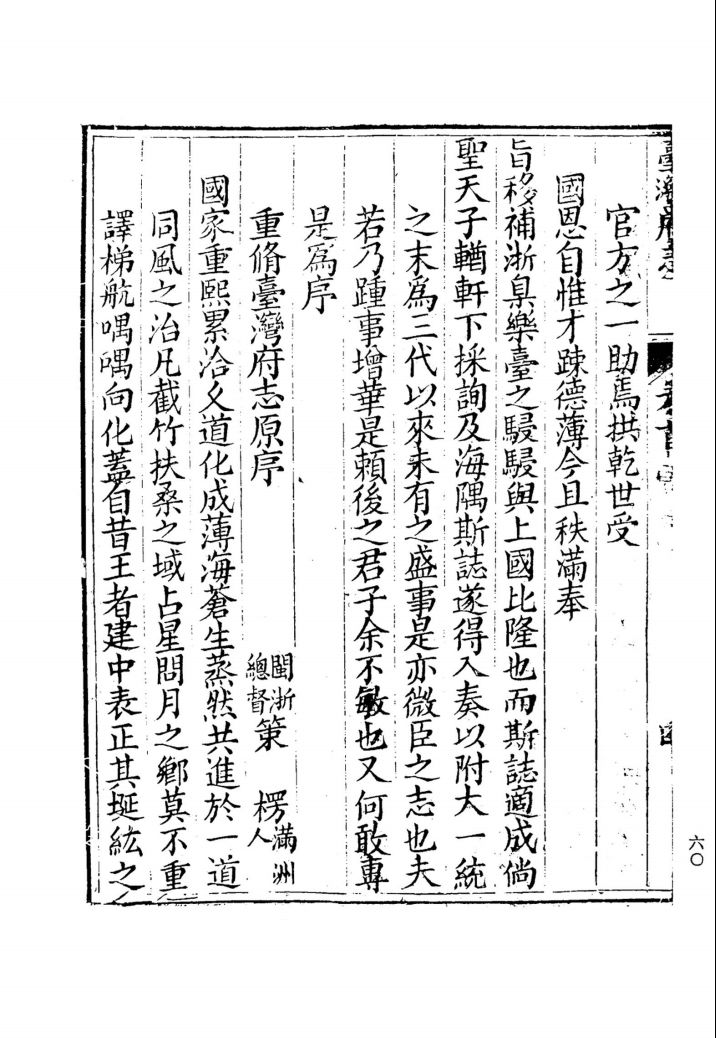 臺灣府志
卷首
官方之一助焉拱乾世受
國恩自惟才踈德薄今且秩滿奉
旨移補浙臬樂臺之駸駸與上國比隆也而斯誌適成倘
聖天子輶軒下採詢及海隅斯誌遂得入奏以附大一統
之末爲三代以來未有之盛事是亦微臣之志也夫
若乃踵事增華是賴後之君子余不敏也又何敢專
是爲序
重脩臺灣府志原序
閩浙
總督
策楞
滿洲
人
國家重熙累洽久道化成薄海蒼生蒸然共進於一道
同風之治凡截竹扶桑之域占星問月之鄉莫不重
譯梯航喁喁向化蓋自昔王者建中表正其埏紘之
六〇